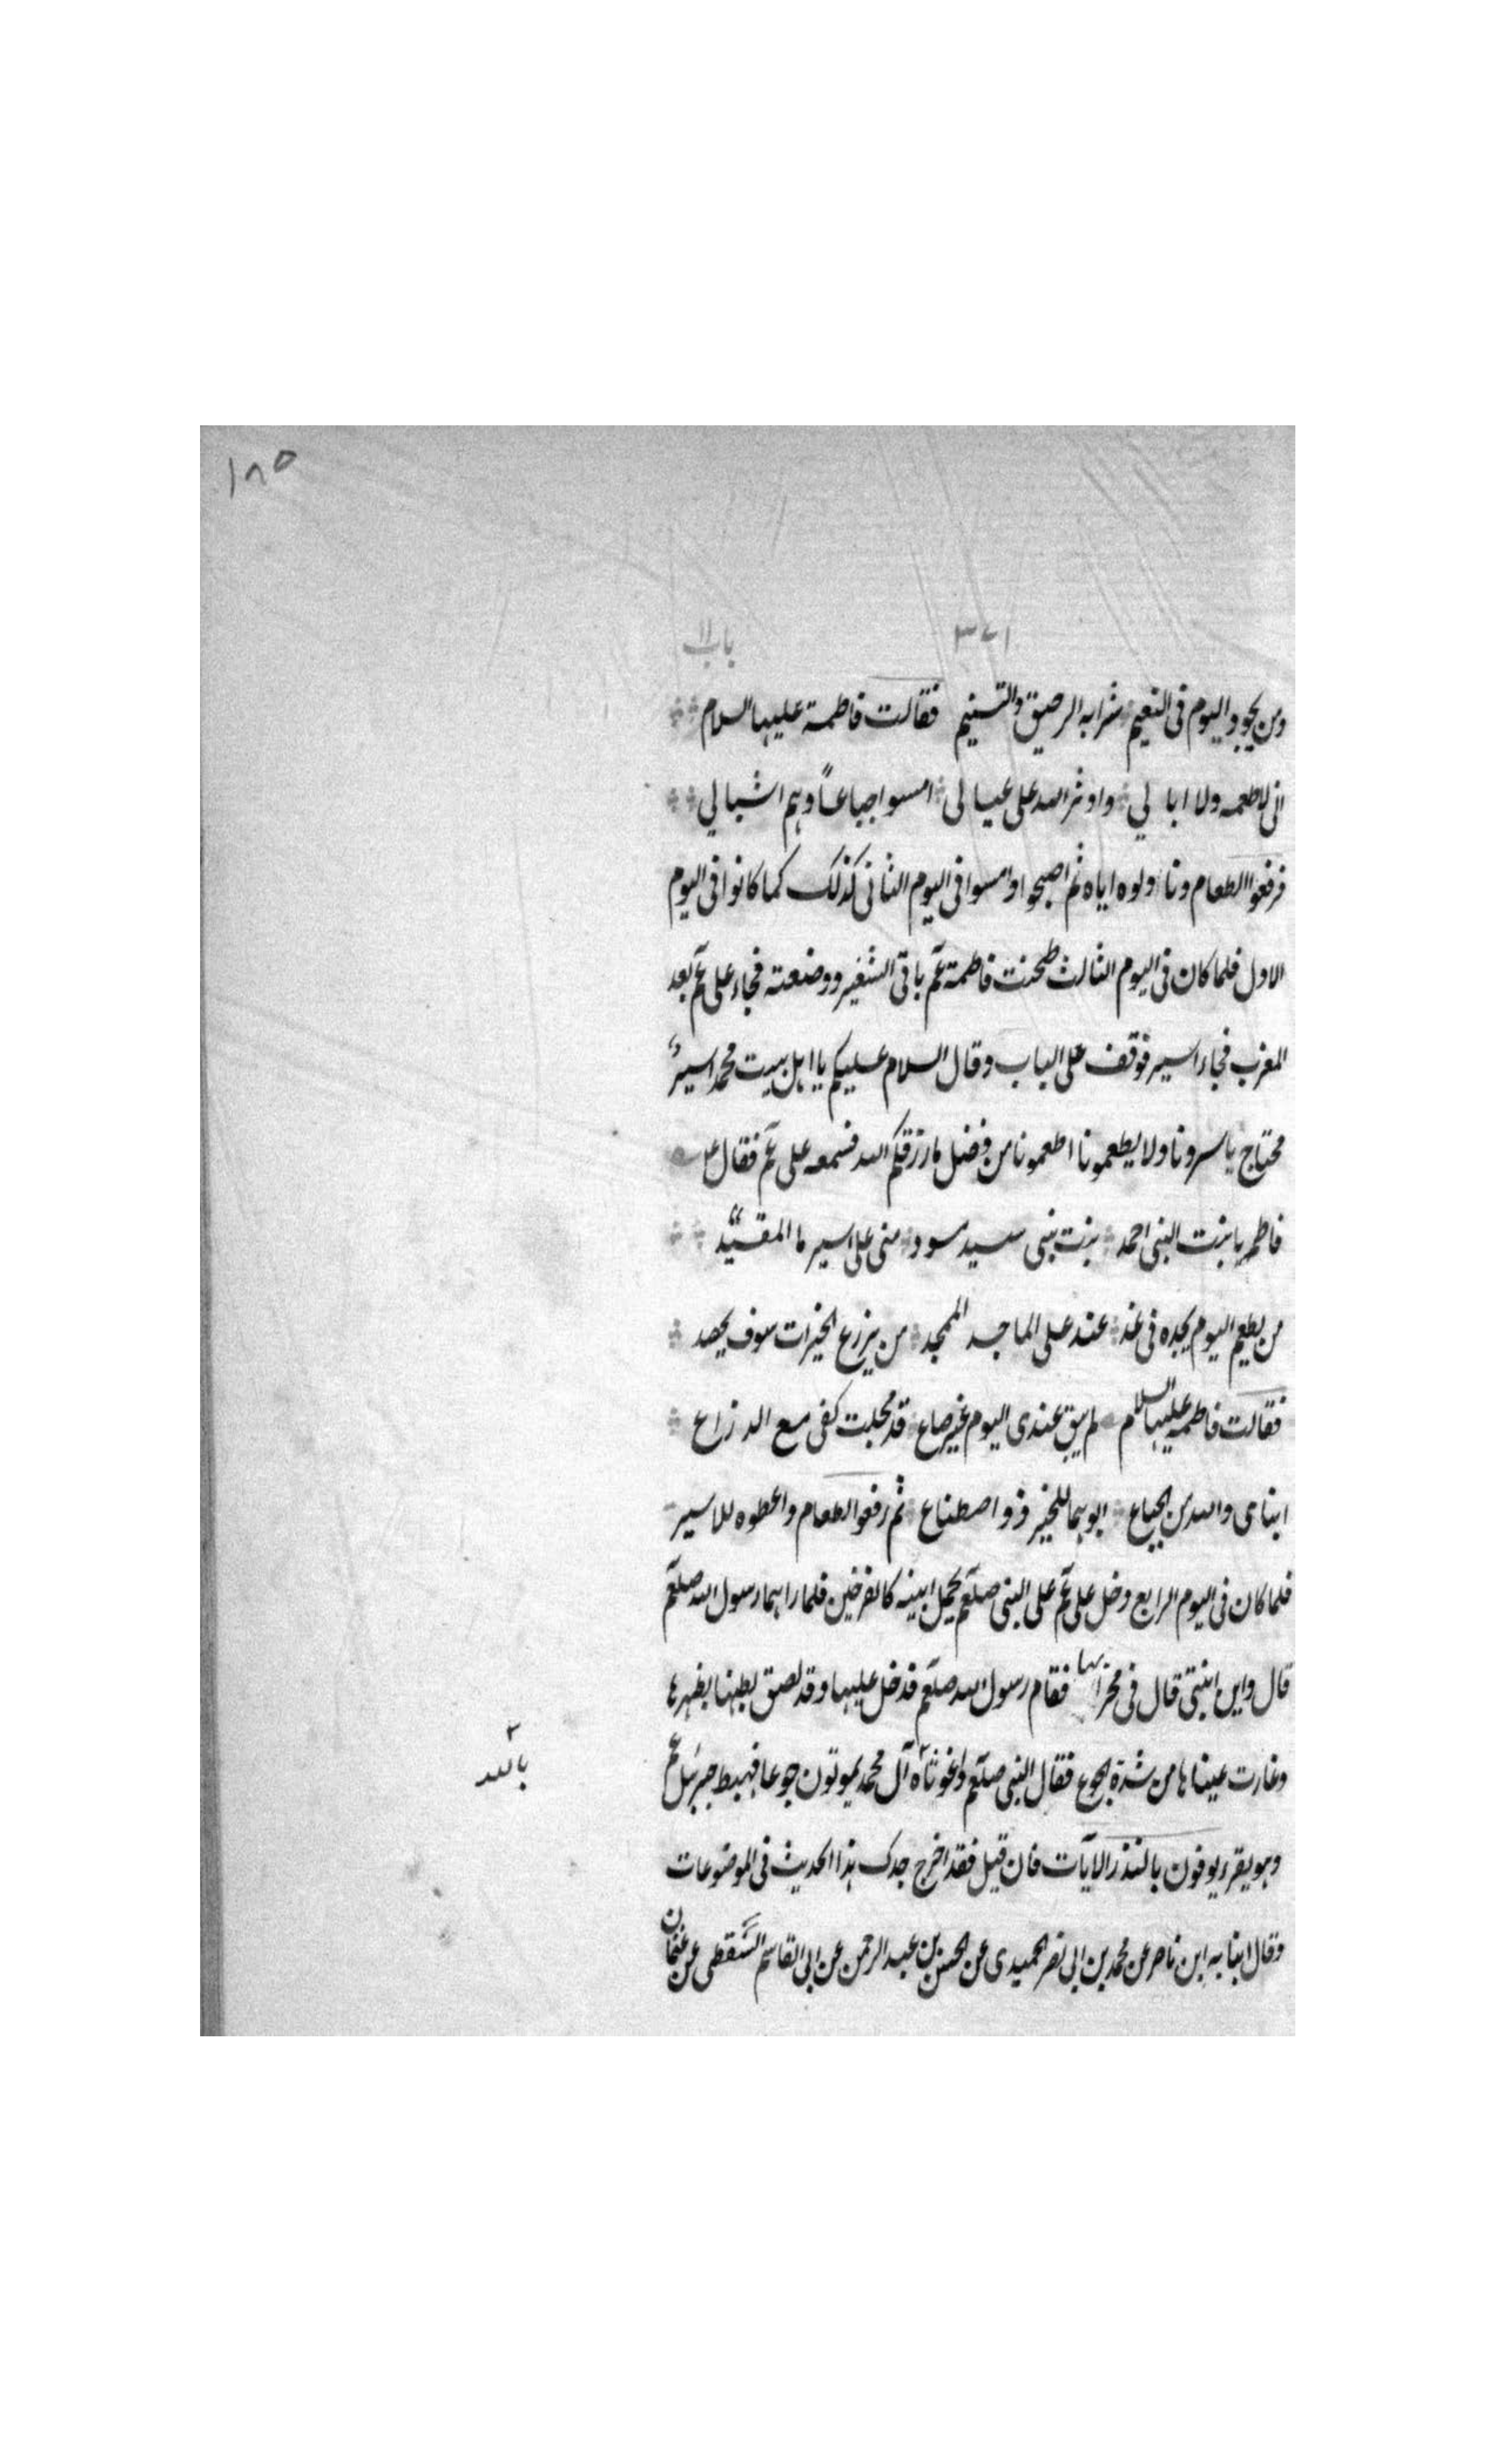 ١٨٥
٣٧١ باب ١١
ومن يجود اليوم فى النعيم شرابه الرحيق والتسنيم فقالت فاطمة عليها السلام
انى لاطعمه ولا ابا لي واوثر الله على عيالى امسوا جياعاً وهم اشبالي
فرفعوا الطعام وناولوه اياه ثم اصبحوا وامسوا فى اليوم الثانى كذلك كما كانوا فى اليوم
الاول فلما كان فى اليوم الثالث طحنت فاطمة عم باقى الشعير ووضعته فجاء على عم بعد
المغرب فجاء اسير فوقف على الباب وقال السلام عليكم يا اهل بيت محمد اسيرٌ
محتاج ياسرونا ولا يطعمونا اطعمونا من فضل ما رزقكم الله فسمعه على عم فقال
فاطم يا بنت النبى احمد بنت نبى سيد مسود منى على اسيرنا المقيّد
من يطعم اليوم يجده فى غد عند على الماجد الممجد من يزرع الخيرات سوف يحصد
فقالت فاطمة عليها السلام لم يبق عندى اليوم غير صاع قد مجلت كفى مع الذراع
ابناى والله من الجياع ابوهما للخير ذو اصطناع ثم رفعوا الطعام واعطوه للاسير
فلما كان فى اليوم الرابع دخل على عم على النبى صلعم يحمل ابنيه كالفرخين فلما راهما رسول الله صلعم
قال واين ابنتى قال فى محرابها فقام رسول الله صلعم فدخل عليها وقد لصق بطنها بظهرها
وغارت عيناها من شدة الجوع فقال النبى صلعم واغوثاه آل محمد يموتون جوعا فهبط جبرئيل عم
بالله
وهو يقرء يوفون بالنذر الآيات فان قيل فقد اخرج جدك هذا الحديث فى الموضوعات
وقال ابنا به ابن ناصر عن محمد بن ابى نصر الحميدى عن الحسن بن عبد الرحمن عن ابى القاسم السَّقطى عن عثمان